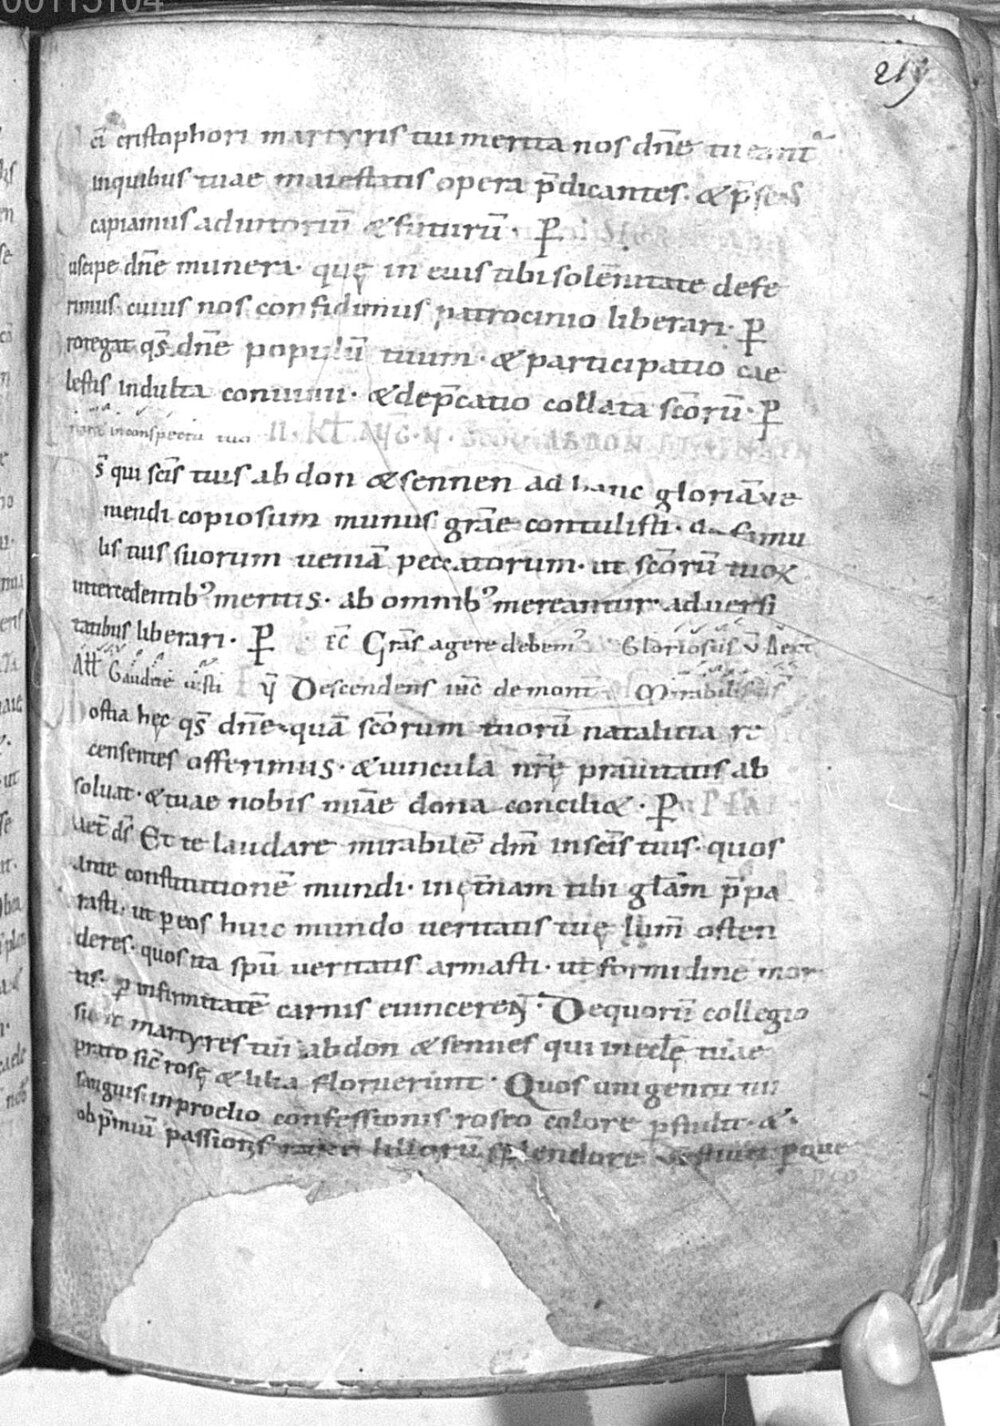 219
ci cristophori martyris tui merita nos dn̄e tueant᷑
inquibus tuae maiestatis opera p̄dicantes· & p̄sens
capiamus adiutoriū & futurū· P̱
uscipe dn̄e munera· quȩ in eius tibi solēnitate defe
rimus· cuius nos confidimus patrocinio liberari· P̱
rotegat qs̄ dn̄e populū tuum· & participatio cae
lestis indulta conuiuii· & dep̄catio collata scōrū· P̱
in conspectu tuo II· KL̄ AUG· N̄· SCOR ABDON
s̄ qui scīs tuis abdon & sennen ad hanc gloriā ue
niendi copiosum munus grāe contulisti· da famu
lis tuis suorum ueniā peccatorum· ut scōrū tuoꝝ
intercedentib᾿ meritis· ab omnib᾿ mereantur aduersi
tatibus liberari· P̱ Grās agere debem᾿ Gloriosus
Gaudete iusti Descendens iħc de monte Mirabilis
ostia hȩc qs̄ dn̄e quā scōrum tuorū natalitia re
censentes offerimus· & uincula nr̄ȩ prauitatis ab
soluat· & tuae nobis mīae dona conciliet· P̱
aet̄ ds̄ Et te laudare mirabilē dm̄ in scīs tuis· quos
ante constitutionē mundi· in ȩt̄nam tibi glām p̄pa
rasti· ut p eos huic mundo ueritatis tuȩ lum̄ osten
deres· quos ita spū ueritatis armasti· ut formidine mor
tis· p infirmitatē carnis euincereN̄· De quorū collegio
martyres tui abdon & sennes qui in eclȩ tuae
prato sic̄ rosȩ & lilia floruerunt· Quos unigeniti tui
sanguis in proelio confessionis roseo colore pfudit· &
ob p̄miū passionis liliorū splendore uestiuit p que